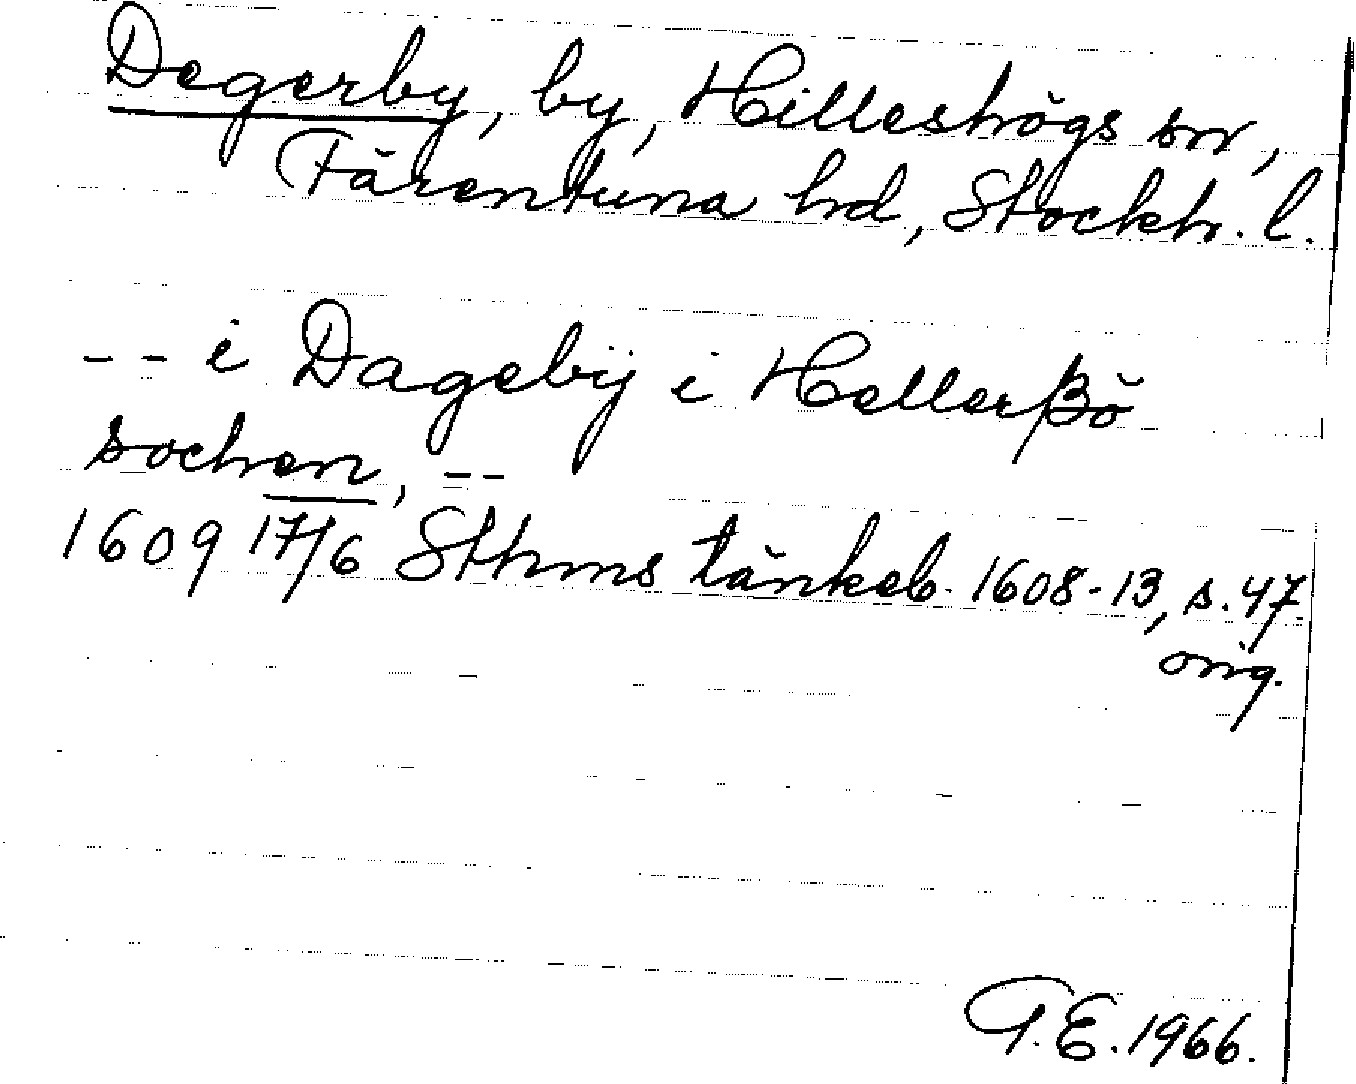 Degerby, by, Hilleshögs sn,
Färentuna hd, Stockh. l.
-- i Dagebÿ i Hellerßö
sochen, --
1609 17/6 Sthms tänkeb. 1608-13, s. 47.
orig.
T.E. 1966.